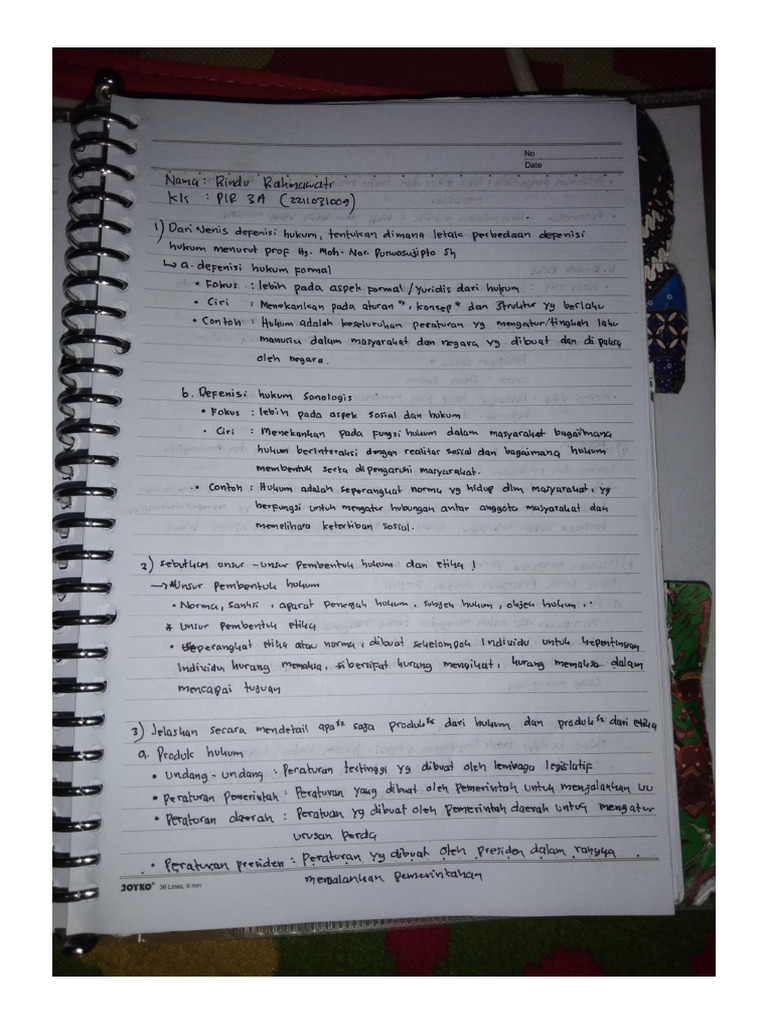 No
Date
Nama : Rindu Rahmawati
kls : PIR 3A (2211031009)
1) Dari Jenis defenisi hukum, tentukan dimana letak perbedaan defenisi
hukum menurut prof Hy. Moh. Nor. Purwosujipto Sh
↳ a. defenisi hukum formal
• Fokus : lebih pada aspek formal / yuridis dari hukum
• Ciri : Menekankan pada aturan", konsep" dan struktur yg berlaku
• Contoh : Hukum adalah keseluruhan peraturan yg mengatur/tingkah laku
manusia dalam masyarakat dan negara yg dibuat dan dipaksa
oleh negara.
b. Defenisi hukum sonologis
• Fokus : lebih pada aspek sosial dan hukum
• Ciri : Menekankan pada fungsi hukum dalam masyarakat bagaimana
hukum berinteraksi dengan realitas sosial dan bagaimana hukum
membentuk serta dipengaruhi masyarakat.
• Contoh : Hukum adalah seperangkat norma yg hidup dlm masyarakat, yg
berfungsi untuk mengatur hubungan antar anggota masyarakat dan
memelihara ketertiban sosial.
2) Sebutkan unsur - unsur pembentuk hukum dan etika !
→ * Unsur pembentuk hukum
• Norma, sanksi, aparat penegak hukum, subjek hukum, objek hukum, .
* Unsur pembentuk etika
• Seperangkat etika atau norma, dibuat sekelompok individu untuk kepentingan
Individu kurang memaksa, bersifat kurang mengikat, kurang memaksa dalam
mencapai tujuan
3) Jelaskan secara mendetail apa" saja produk" dari hukum dan produk" dari etika
a. Produk hukum
• Undang - undang : Peraturan tertinggi yg dibuat oleh lembaga legislatif
• Peraturan Pemerintah : Peraturan yang dibuat oleh pemerintah untuk menjalankan UU
• Peraturan daerah : Peratuan yg dibuat oleh pemerintah daerah untuk mengatur
urusan perda
• Peraturan presiden : Peraturan yg dibuat oleh presiden dalam rangka
menjalankan pemerintahan
JOYKO® 36 Lines, 6 mm